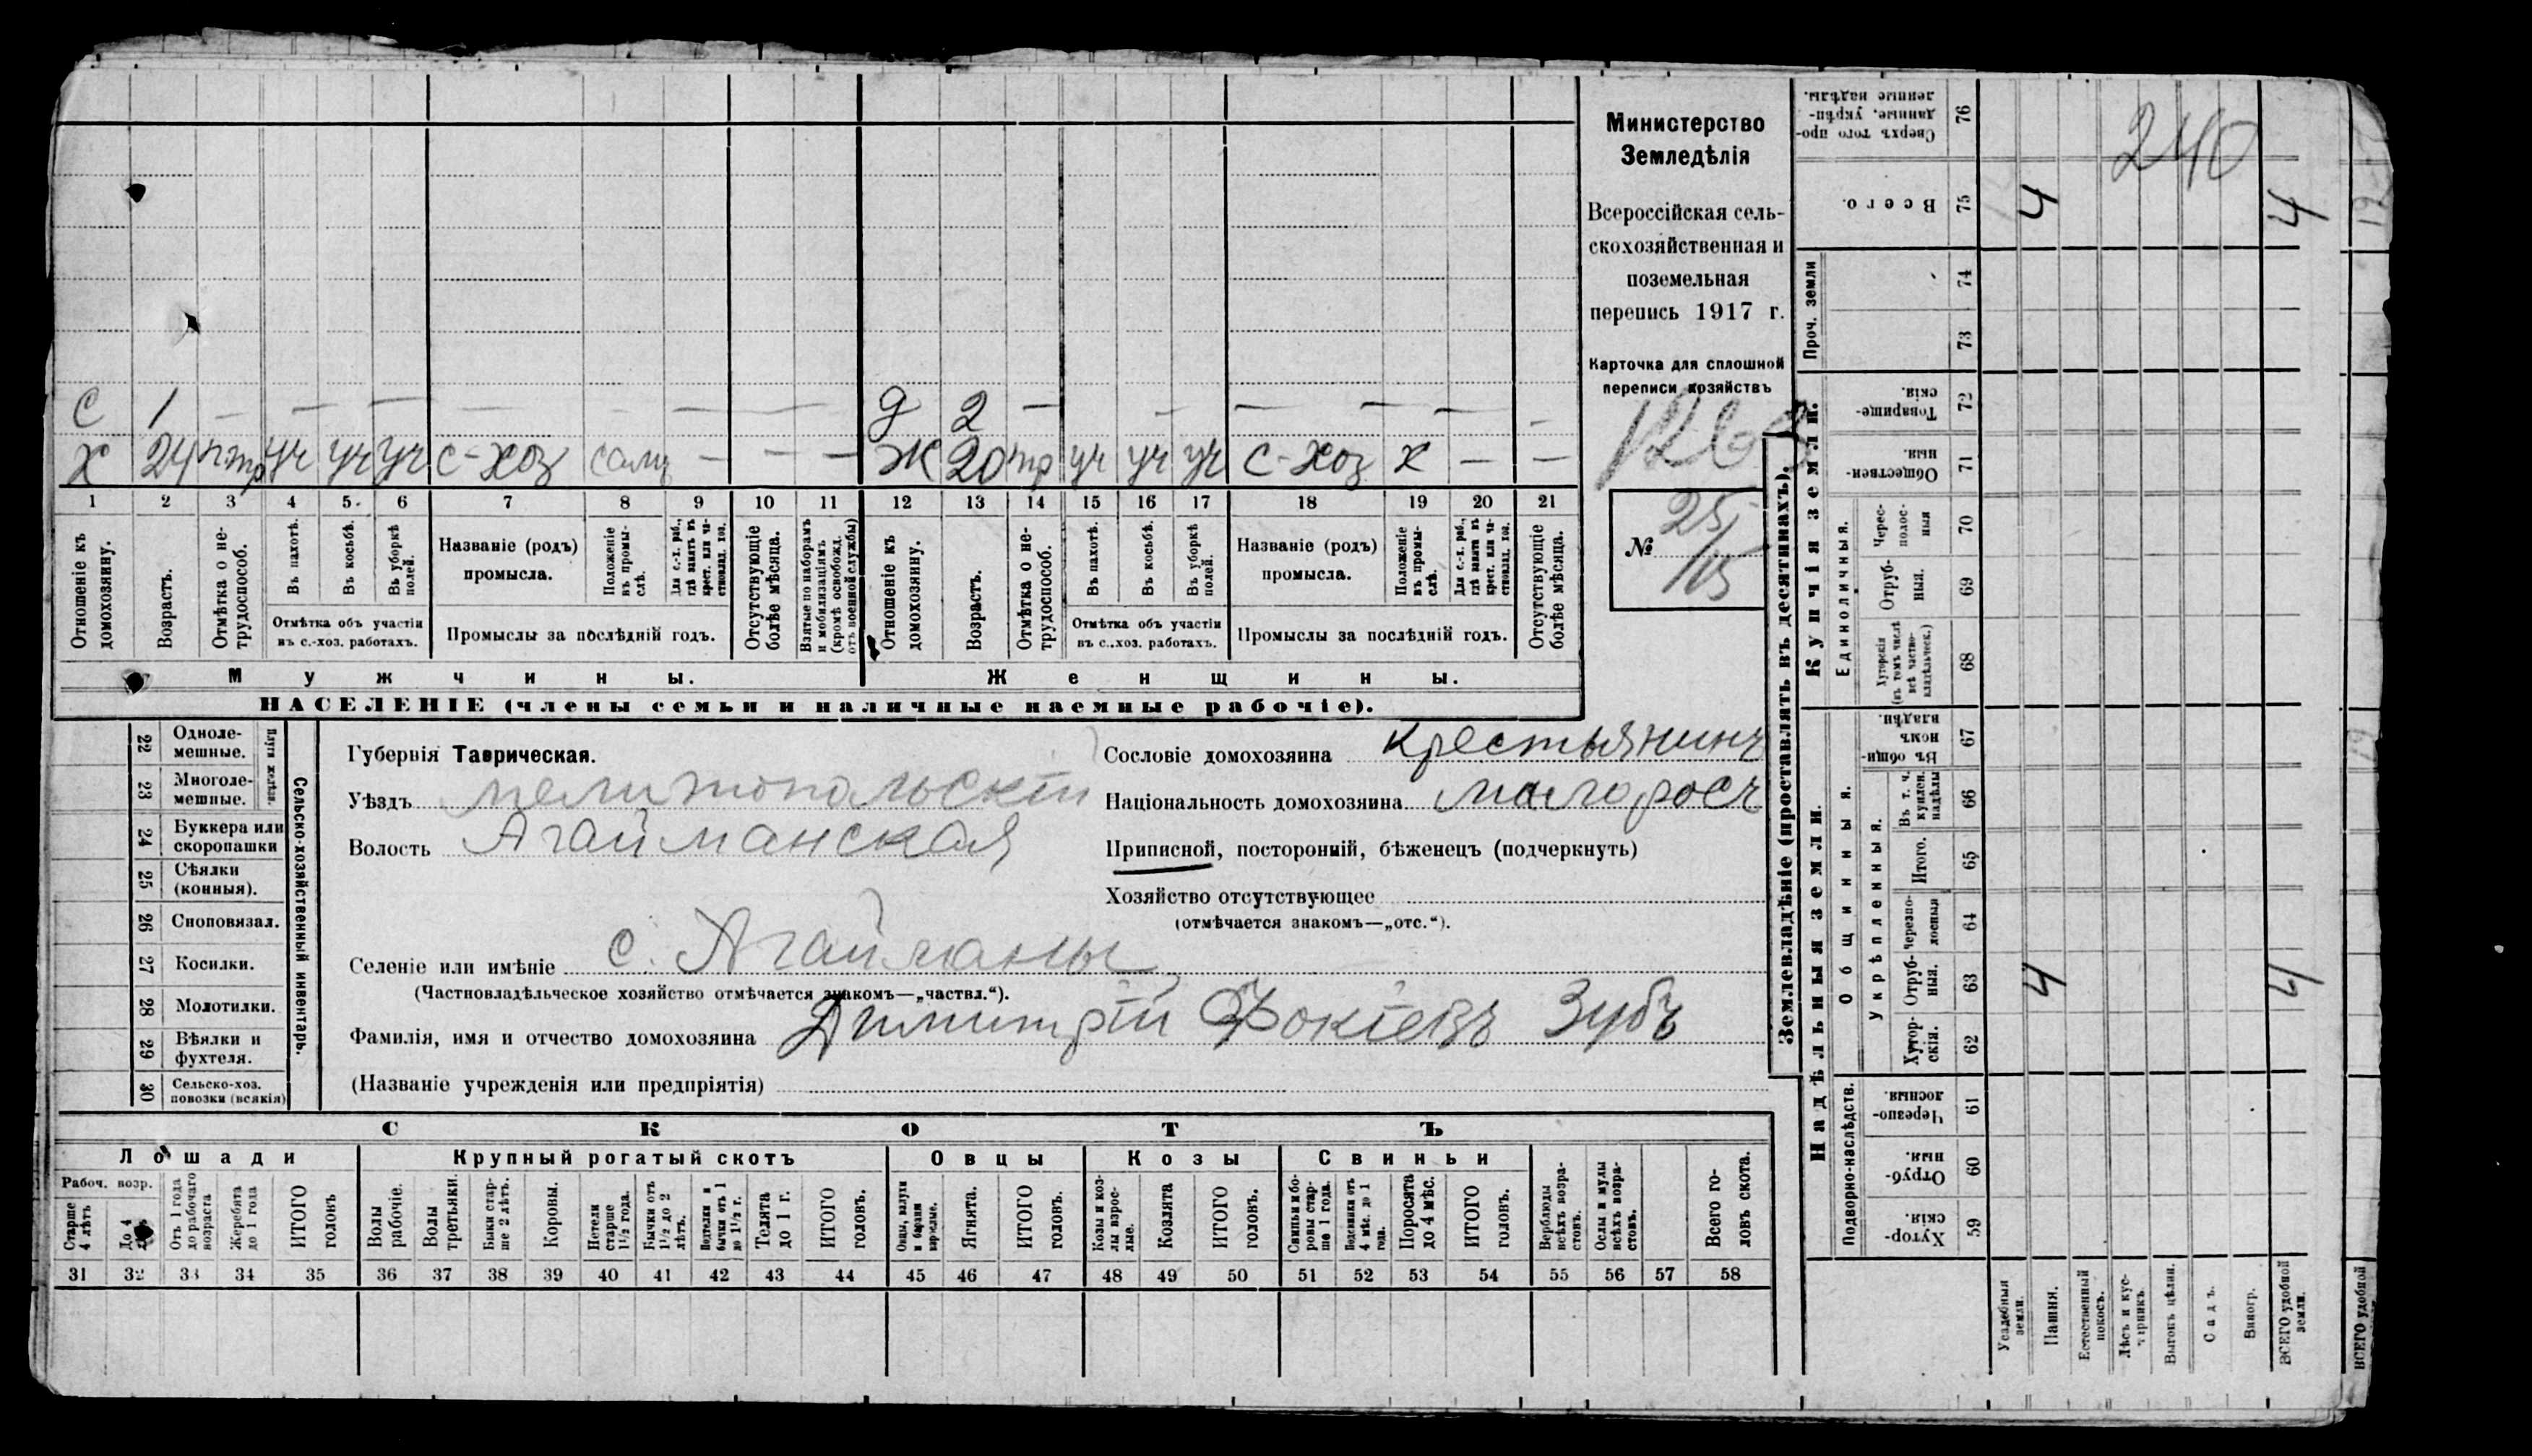 Министерство
Земледѣлія
Всероссійская сель-
скохозяйственная и
поземельная
перепись 1917 г.
Карточка для сплошной
переписи хозяйствъ
№ 25/15
С 1 — — — — — — — — — д 2 — — — — — —
Х 24 уч уч уч с-хоз — — — Ж 20 уч уч уч с-хоз х — —
1 2 3 4 5 6 7 8 9 10 11 12 13 14 15 16 17 18 19 20 21
Отношеніе къ домохозяину.
Возрастъ.
Отмѣтка о не-трудоспособ.
Въ пахотѣ.
Въ косьбѣ.
Въ уборкѣ полей.
Отмѣтка объ участіи
въ с.-хоз. работахъ.
Названіе (родъ)
промысла.
Положеніе въ промы-слѣ.
Для с.-х. раб., гдѣ занятъ въ крест. или ча-стновлад. хоз.
Промыслы за послѣдній годъ.
Отсутствующіе болѣе мѣсяца.
Взятые по наборамъ и мобилизаціямъ (кромѣ освобожд. отъ военной службы)
Отношеніе къ домохозяину.
Возрастъ.
Отмѣтка о не-трудоспособ.
Въ пахотѣ.
Въ косьбѣ.
Въ уборкѣ полей.
Отмѣтка объ участіи
въ с.-хоз. работахъ.
Названіе (родъ)
промысла.
Положеніе въ промы-слѣ.
Для с.-х. раб., гдѣ занятъ въ крест. или ча-стновлад. хоз.
Промыслы за послѣдній годъ.
Отсутствующіе болѣе мѣсяца.
Мужчины. Женщины.
НАСЕЛЕНІЕ (члены семьи и наличные наемные рабочіе).
Сельско-хозяйственный инвентарь.
Плуги желѣз.
22 Одноле-мешные.
23 Многоле-мешные.
24 Буккера или скоропашки
25 Сѣялки (конныя).
26 Сноповязал.
27 Косилки.
28 Молотилки.
29 Вѣялки и фухтеля.
30 Сельско-хоз. повозки (всякія)
Губернія Таврическая.
Уѣздъ Мелитопольскій
Волость Агайманская
Селеніе или имѣніе с. Агайманы
(Частновладѣльческое хозяйство отмѣчается знакомъ—„частвл.“).
Фамилія, имя и отчество домохозяина Димитрій Фокіевъ Зубъ
(Названіе учрежденія или предпріятія)
Сословіе домохозяина Крестьянинъ
Національность домохозяина малоросъ
Приписной, посторонній, бѣженецъ (подчеркнуть)
Хозяйство отсутствующее
(отмѣчается знакомъ—„отс.“).
СКОТЪ
Лошади Крупный рогатый скотъ Овцы Козы Свиньи
Рабоч. возр.
Старше 4 лѣтъ
До 4
Отъ 1 года до рабочаго возраста
Жеребята до 1 года
ИТОГО головъ
Волы рабочіе.
Волы третьяки.
Быки стар-ше 2 лѣтъ.
Коровы.
Нетели старше 1½ года.
Бычки отъ 1½ до 2 лѣтъ.
Подтелки и бычки отъ 1 до 1½ г.
Телята до 1 г.
ИТОГО головъ.
Овцы, валухи и бараны взрослые.
Ягнята.
ИТОГО головъ.
Козы и коз-лы взрос-лые.
Козлята
ИТОГО головъ.
Свиньи и бо-ровы стар-ше 1 года.
Подсвинки отъ 4 мѣс. до 1 года.
Поросята до 4 мѣс.
ИТОГО головъ.
Верблюды всѣхъ возра-стовъ.
Ослы и мулы всѣхъ возра-стовъ.
Всего го-ловъ скота.
31 32 33 34 35 36 37 38 39 40 41 42 43 44 45 46 47 48 49 50 51 52 53 54 55 56 57 58
Землевладѣніе (проставлять въ десятинахъ).
Купчія земли.
Надѣльныя земли.
Проч. земли
Единоличныя.
Общинныя.
Укрѣпленныя.
Подворно-наслѣдств.
Сверхъ того про-данные, укрѣп-ленные надѣлы. 76 240
Всего. 75 4 4
74
73
Товарище-скія. 72
Обществен-ныя. 71
Черес-полос-ныя 70
Отруб-ныя. 69
Хуторскія (въ томъ числѣ всѣ частно-владѣльческ.) 68
Въ общин-номъ владѣн. 67
Въ т. ч. куплен. надѣлы 66
Итого. 65
Черезпо-лосныя 64
Отруб-ныя. 63 4 4
Хутор-скія. 62
Черезпо-лосныя. 61
Отруб-ныя. 60
Хутор-скія. 59
Усадебныя земли.
Пашня.
Естественный покосъ.
Лѣсъ и кус-тарникъ.
Выгонъ цѣлин.
Садъ.
Виногр.
ВСЕГО удобной земли.
ВСЕГО удобной